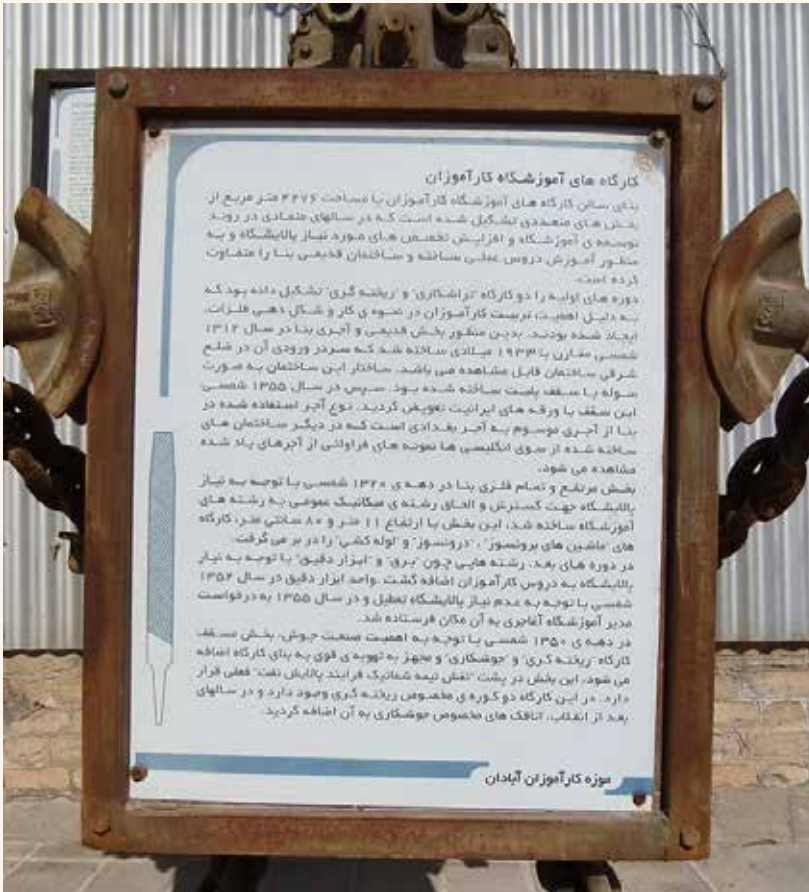 کارگاه های آموزشگاه کارآموزان
بنای سالن کارگاه های آموزشگاه کارآموزان با مساحت ۴۲۷۶ متر مربع از
بخش های متعددی تشکیل شده است که در سالهای متمادی در روند
توسعه ی آموزشگاه و افزایش تخصص های مورد نیاز پالایشگاه و به
منظور آموزش دروس عملی ساخته و ساختمان قدیمی بنا را متفاوت
کرده است.
دوره های اولیه را دو کارگاه "تراشکاری" و "ریخته گری" تشکیل داده بود که
به دلیل اهمیت تربیت کارآموزان در نحوه ی کار و شکل دهی فلزات،
ایجاد شده بودند. بدین منظور بخش قدیمی و آجری بنا در سال ۱۳۱۲
شمسی مقارن با ۱۹۳۳ میلادی ساخته شد که سردر ورودی آن در ضلع
شرقی ساختمان قابل مشاهده می باشد. ساختار این ساختمان به صورت
سوله با سقف پلیت ساخته شده بود. سپس در سال ۱۳۵۵ شمسی
این سقف با ورقه های ایرانیت تعویض گردید. نوع آجر استفاده شده در
بنا از آجری موسوم به آجر بغدادی است که در دیگر ساختمان های
ساخته شده از سوی انگلیسی ها نمونه های فراوانی از آجرهای یاد شده
مشاهده می شود.
بخش مرتفع و تمام فلزی بنا در دهه ی ۱۳۲۰ شمسی با توجه به نیاز
پالایشگاه جهت گسترش و الحاق رشته ی میکانیک عمومی به رشته های
آموزشگاه ساخته شد، این بخش با ارتفاع ۱۱ متر و ۸۰ سانتی متر، کارگاه
های "ماشین های برونسوز" ، "درونسوز" و "لوله کشی" را در بر می گرفت.
در دوره های بعد، رشته هایی چون "برق" و "ابزار دقیق" با توجه به نیاز
پالایشگاه به دروس کارآموزان اضافه گشت .واحد ابزار دقیق در سال ۱۳۵۲
شمسی با توجه به عدم نیاز پالایشگاه تعطیل و در سال ۱۳۵۵ به درخواست
مدیر آموزشگاه آغاجری به آن مکان فرستاده شد.
در دهه ی ۱۳۵۰ شمسی با توجه به اهمیت صنعت جوش، بخش مسقف
کارگاه "ریخته گری" و "جوشکاری" و مجهز به تهویه ی قوی به بنای کارگاه اضافه
می شود. این بخش در پشت "نقش نیمه شماتیک فرایند پالایش نفت" فعلی قرار
دارد. در این کارگاه دو کوره ی مخصوص ریخته گری وجود دارد و در سالهای
بعد از انقلاب، اتاقک های مخصوص جوشکاری به آن اضافه گردید.
موزه کارآموزان آبادان